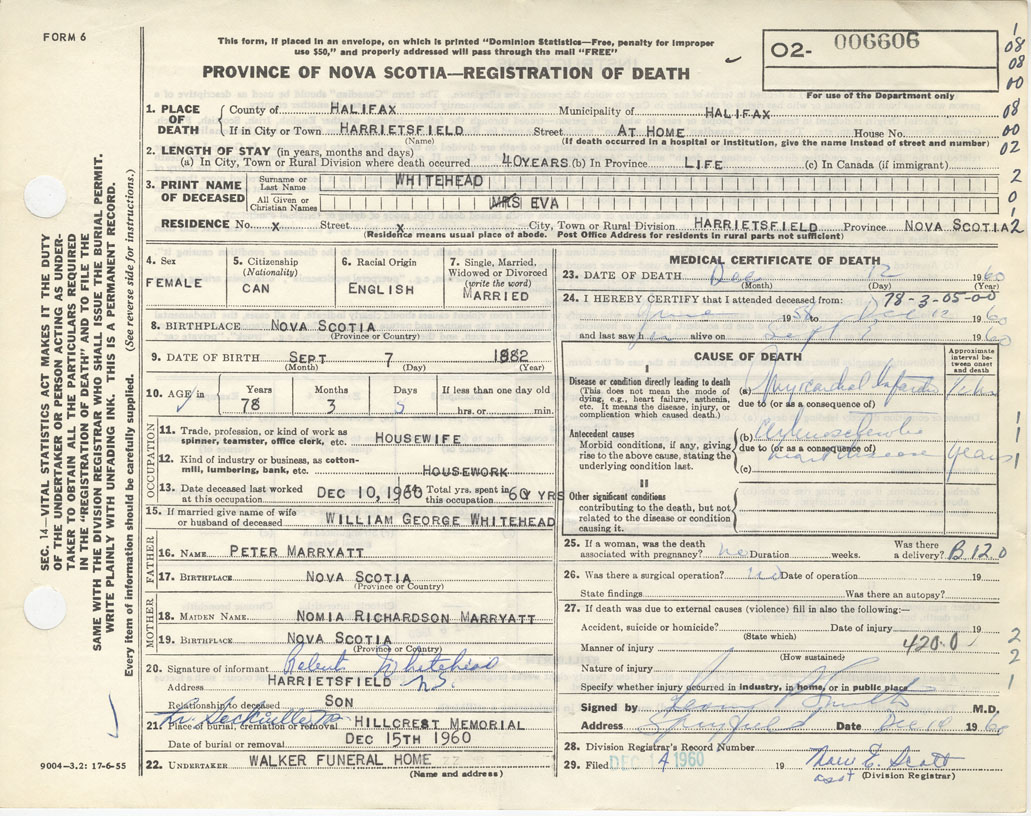 FORM 6
This form, if placed in an envelope, on which is printed "Dominion Statistics—Free, penalty for improper
use $50," and properly addressed will pass through the mail "FREE"
PROVINCE OF NOVA SCOTIA—REGISTRATION OF DEATH
02- 006606
For use of the Department only
1. PLACE OF DEATH County of HALIFAX Municipality of HALIFAX
If in City or Town HARRIETSFIELD Street AT HOME House No.
(Name) (If death occurred in a hospital or institution, give the name instead of street and number)
2. LENGTH OF STAY (in years, months and days)
(a) In City, Town or Rural Division where death occurred 40YEARS (b) In Province LIFE (c) In Canada (if immigrant)
3. PRINT NAME OF DECEASED Surname or Last Name WHITEHEAD
All Given or Christian Names MRS EVA
RESIDENCE No. X Street X City, Town or Rural Division HARRIETSFIELD Province NOVA SCOTIA
(Residence means usual place of abode. Post Office Address for residents in rural parts not sufficient)
1
08
08
00
08
00
02
2
0
2
4. Sex FEMALE
5. Citizenship (Nationality) CAN
6. Racial Origin ENGLISH
7. Single, Married, Widowed or Divorced (write the word) MARRIED
8. BIRTHPLACE NOVA SCOTIA
(Province or Country)
9. DATE OF BIRTH SEPT 7 1882
(Month) (Day) (Year)
10. AGE in Years 78 Months 3 Days 5 If less than one day old hrs. or min.
OCCUPATION
11. Trade, profession, or kind of work as spinner, teamster, office clerk, etc. HOUSEWIFE
12. Kind of industry or business, as cotton-mill, lumbering, bank, etc. HOUSEWORK
13. Date deceased last worked at this occupation DEC 10, 1960 Total yrs. spent in this occupation 60 YRS
15. If married give name of wife or husband of deceased WILLIAM GEORGE WHITEHEAD
FATHER
16. NAME PETER MARRYATT
17. BIRTHPLACE NOVA SCOTIA
(Province or Country)
MOTHER
18. MAIDEN NAME NOMIA RICHARDSON MARRYATT
19. BIRTHPLACE NOVA SCOTIA
(Province or Country)
20. Signature of informant Whitehead
Address HARRIETSFIELD N.S.
Relationship to deceased SON
21. Place of burial, cremation or removal HILLCREST MEMORIAL
Date of burial or removal DEC 15TH 1960
22. UNDERTAKER WALKER FUNERAL HOME
(Name and address)
MEDICAL CERTIFICATE OF DEATH
23. DATE OF DEATH Dec 12 1960
(Month) (Day) (Year)
24. I HEREBY CERTIFY that I attended deceased from: 78-3-05-00
June 1958 to Dec 12 1960
and last saw h er alive on Sept 1960
CAUSE OF DEATH
Approximate interval between onset and death
I
Disease or condition directly leading to death
(This does not mean the mode of dying, e.g., heart failure, asthenia, etc. It means the disease, injury, or complication which caused death.)
(a) Myocardial Infarction
due to (or as a consequence of)
Antecedent causes
Morbid conditions, if any, giving rise to the above cause, stating the underlying condition last.
(b) Arteriosclerotic
due to (or as a consequence of)
heart disease years
(c)
II
Other significant conditions
contributing to the death, but not related to the disease or condition causing it.
1
1
1
25. If a woman, was the death associated with pregnancy? no Duration weeks. Was there a delivery? B 12.0
26. Was there a surgical operation? no Date of operation 19
State findings Was there an autopsy?
27. If death was due to external causes (violence) fill in also the following:—
Accident, suicide or homicide? Date of injury 19
(State which)
Manner of injury 420.0
(How sustained)
Nature of injury
Specify whether injury occurred in industry, in home, or in public place
2
2
1
Signed by Smith M.D.
Address Spryfield Date Dec 14 1960
28. Division Registrar's Record Number
29. Filed DEC 14 1960 19 E. Scott
asst (Division Registrar)
SEC. 14—VITAL STATISTICS ACT MAKES IT THE DUTY
OF THE UNDERTAKER OR PERSON ACTING AS UNDER-
TAKER TO OBTAIN ALL THE PARTICULARS REQUIRED
IN THE "REGISTRATION OF DEATH" AND TO FILE THE
SAME WITH THE DIVISION REGISTRAR WHO SHALL ISSUE THE BURIAL PERMIT.
WRITE PLAINLY WITH UNFADING INK. THIS IS A PERMANENT RECORD.
Every item of information should be carefully supplied. (See reverse side for instructions.)
9004—3.2: 17-6-55